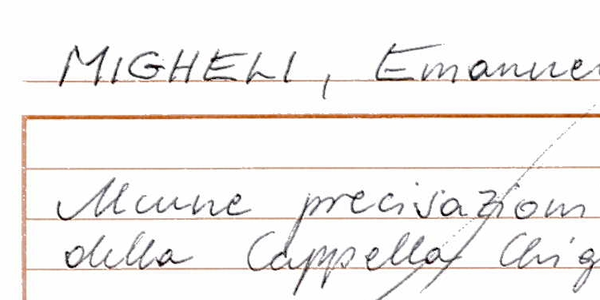 MIGHELI, Emanue
Alcune precisazioni
della Cappella Chig